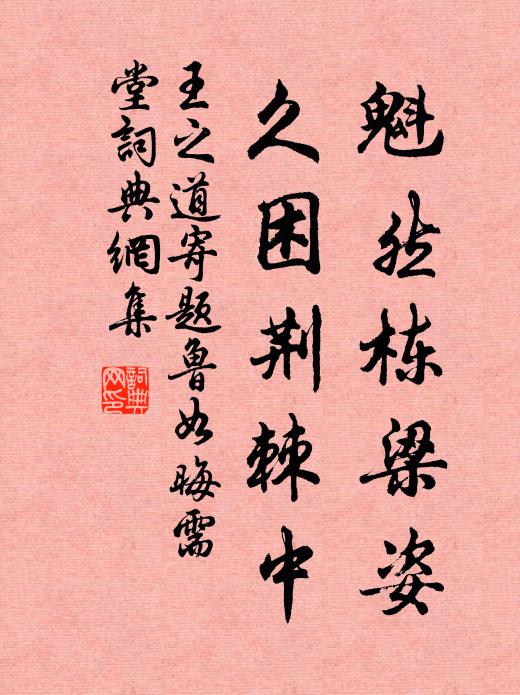 魁然栋梁姿
久困荆棘中
王之道寄题鲁如晦需
堂詞典網集
詞典网印